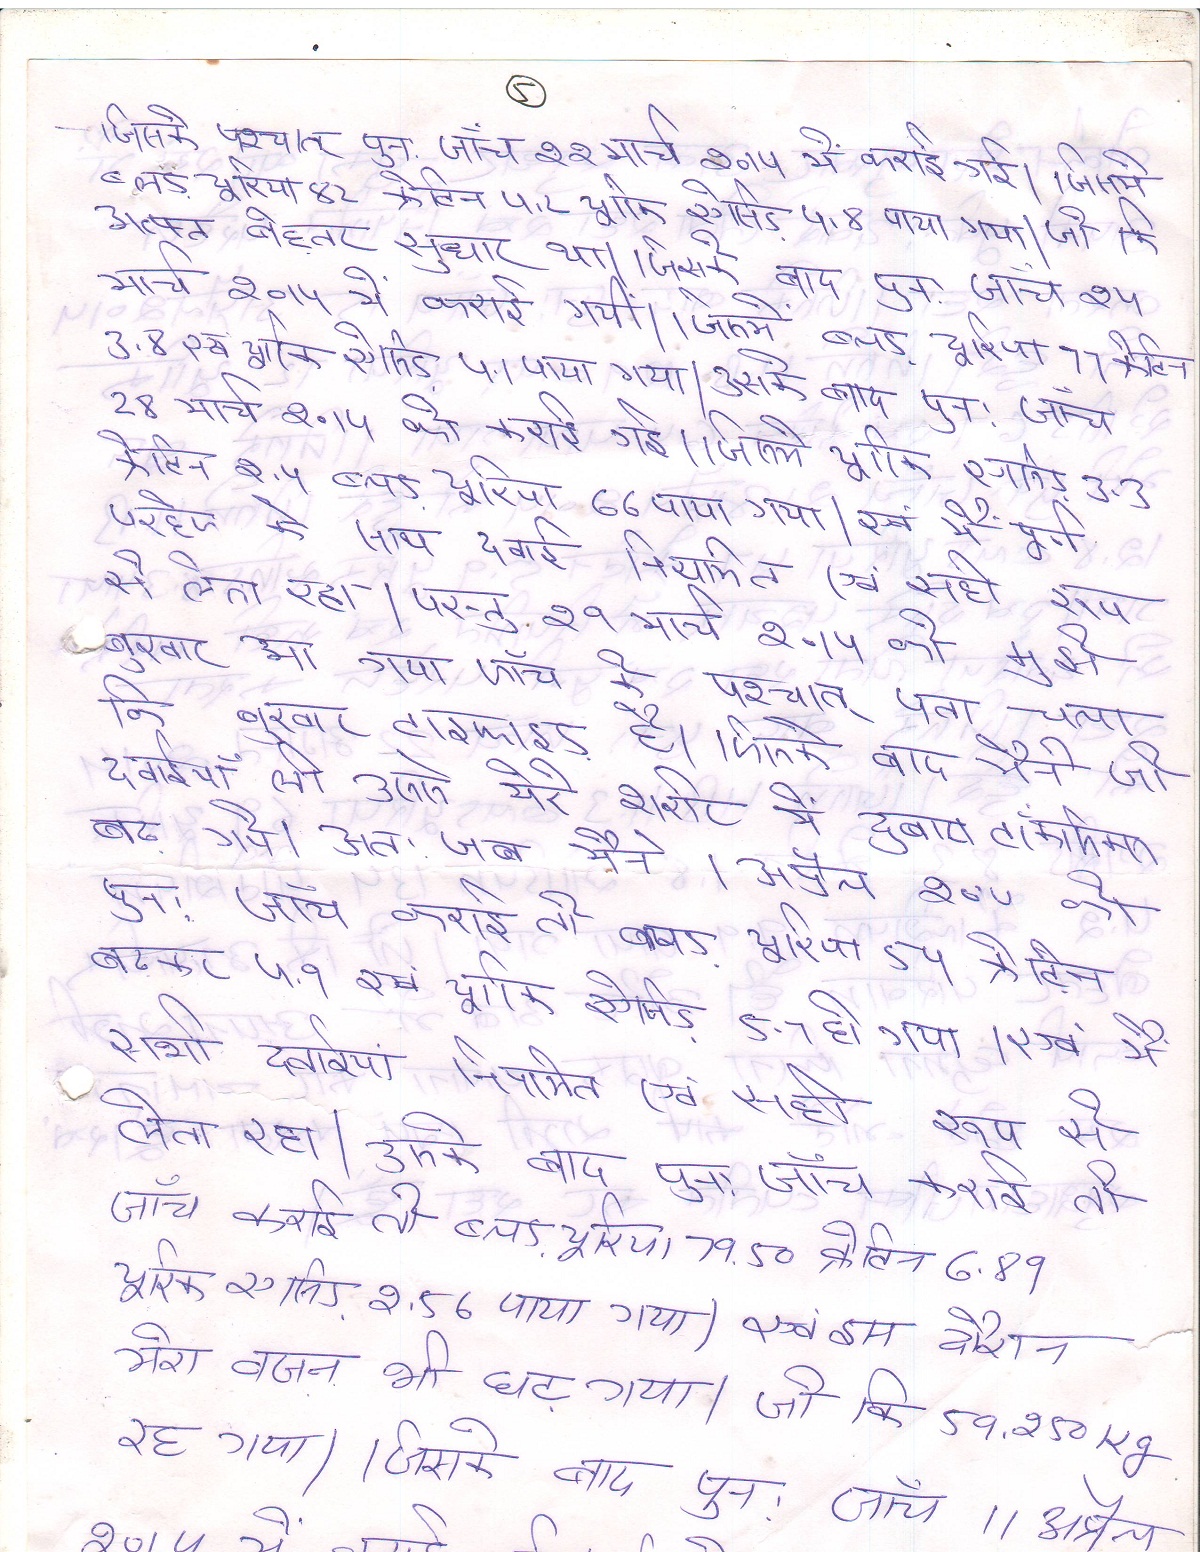 5
जिसके पश्चात् पुन: जाँच २२ मार्च २०१५ में कराई गई। जिसमें
ब्लड यूरिया 82 क्रेटिन ५.८ यूरिक एसिड ५.8 पाया गया। जो कि
अत्यन्त बेहतर सुधार था। जिसके बाद पुन: जाँच २५
मार्च २०१५ में कराई गयी। जिसमें ब्लड यूरिया 77 क्रेटिन
3.8 एवं यूरिक एसिड ५.1 पाया गया। उसके बाद पुन: जाँच
28 मार्च २०१५ को कराई गई। जिसमें यूरिक एसिड 3.3
क्रेटिन २.५ ब्लड यूरिया 66 पाया गया। एवं मैं पूर्ण
परहेज के साथ दवाई नियमित एवं सही रूप
से लेता रहा। परन्तु २९ मार्च २०१५ को मुझे
बुखार आ गया जाँच के पश्चात् पता चला
कि बुखार टाइफाइड है। जिसके बाद मैंने जो
दवाईयाँ ली उससे मेरे शरीर में दुबारा
बढ़ गये। अत: जब मैंने 1 अप्रैल को
पुन: जाँच कराई तो ब्लड यूरिया 5५ क्रेटिन
बढ़कर ५.९ एवं यूरिक एसिड 5.7 हो गया। एवं मैं
सभी दवाईयां नियमित एवं सही रूप से
लेता रहा। उसके बाद पुन: जाँच कराई तो
जाँच कराई तो ब्लड यूरिया 79.50 क्रेटिन 6.89
यूरिक एसिड २.56 पाया गया। एवं इस दौरान
मेरा वजन भी घट गया। जो कि 59.२50 Kg
रह गया। जिसके बाद पुन: जाँच 11 अप्रैल
२०१५ में